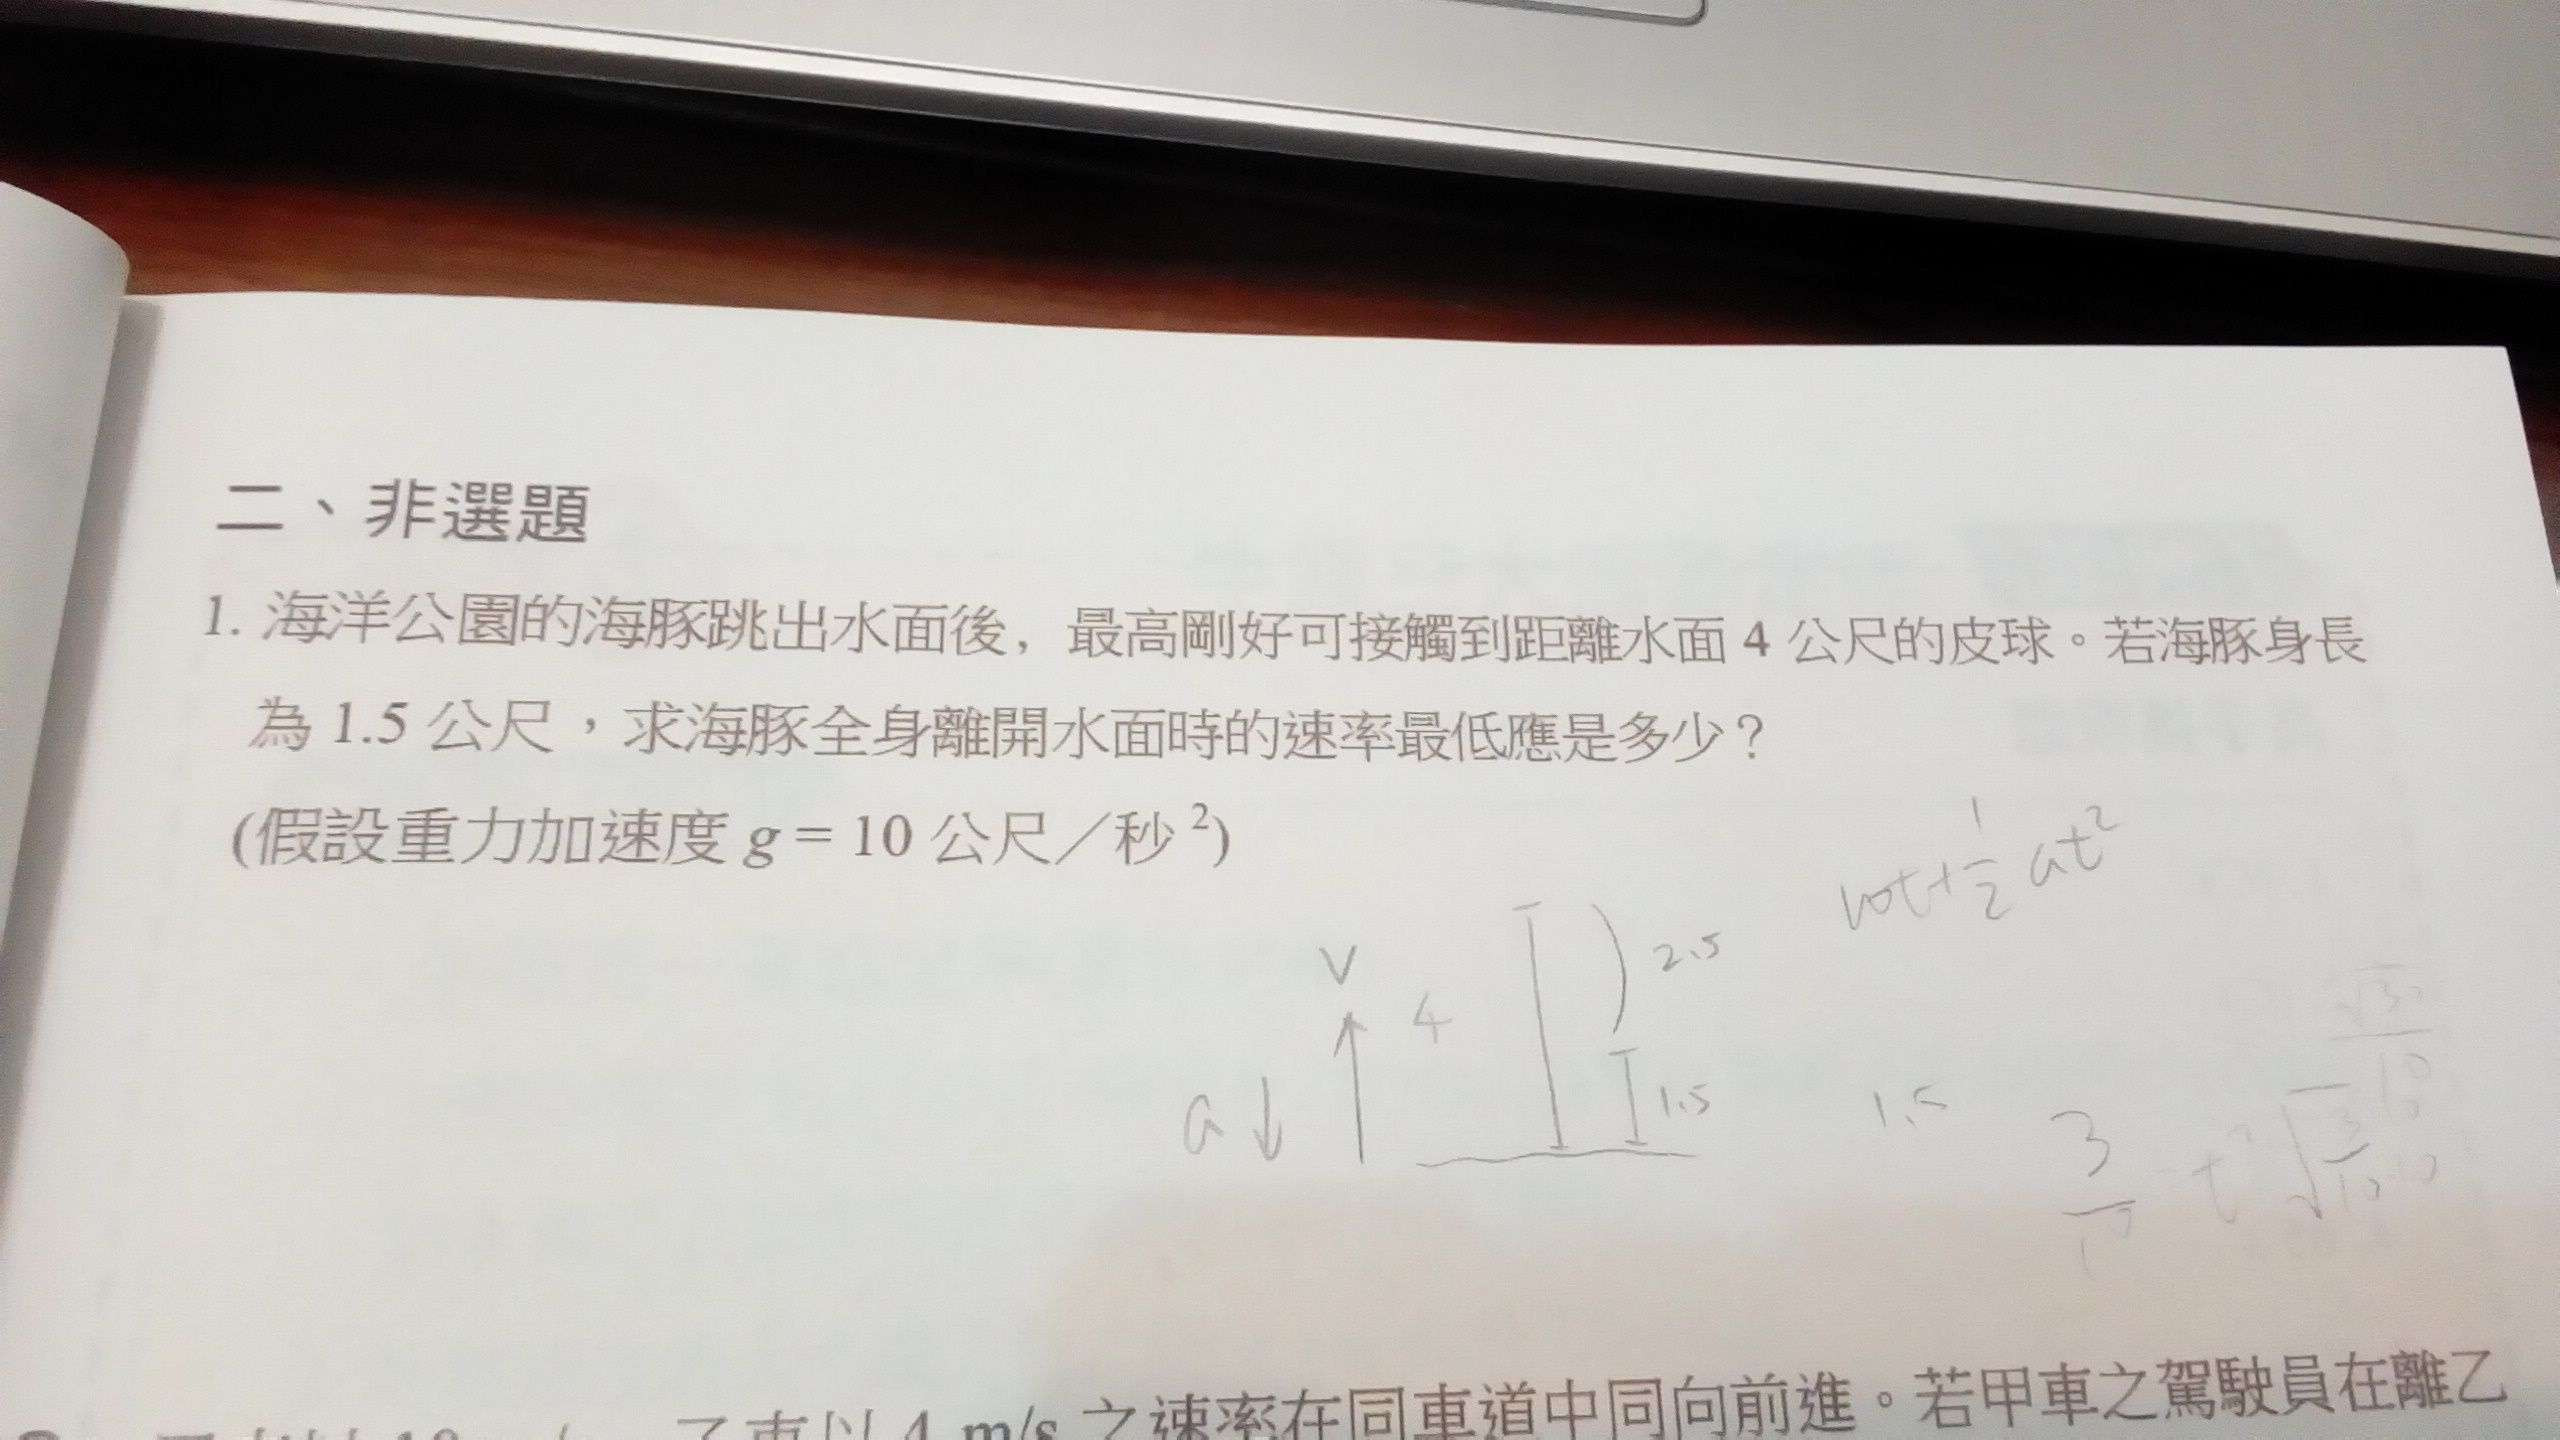 二、非選題
1. 海洋公園的海豚跳出水面後，最高剛好可接觸到距離水面 4 公尺的皮球。若海豚身長
為 1.5 公尺，求海豚全身離開水面時的速率最低應是多少？
(假設重力加速度 g = 10 公尺／秒²)
v₀t+½at²
V
4
2.5
a
1.5
1.5
3
之速率在同車道中同向前進。若甲車之駕駛員在離乙